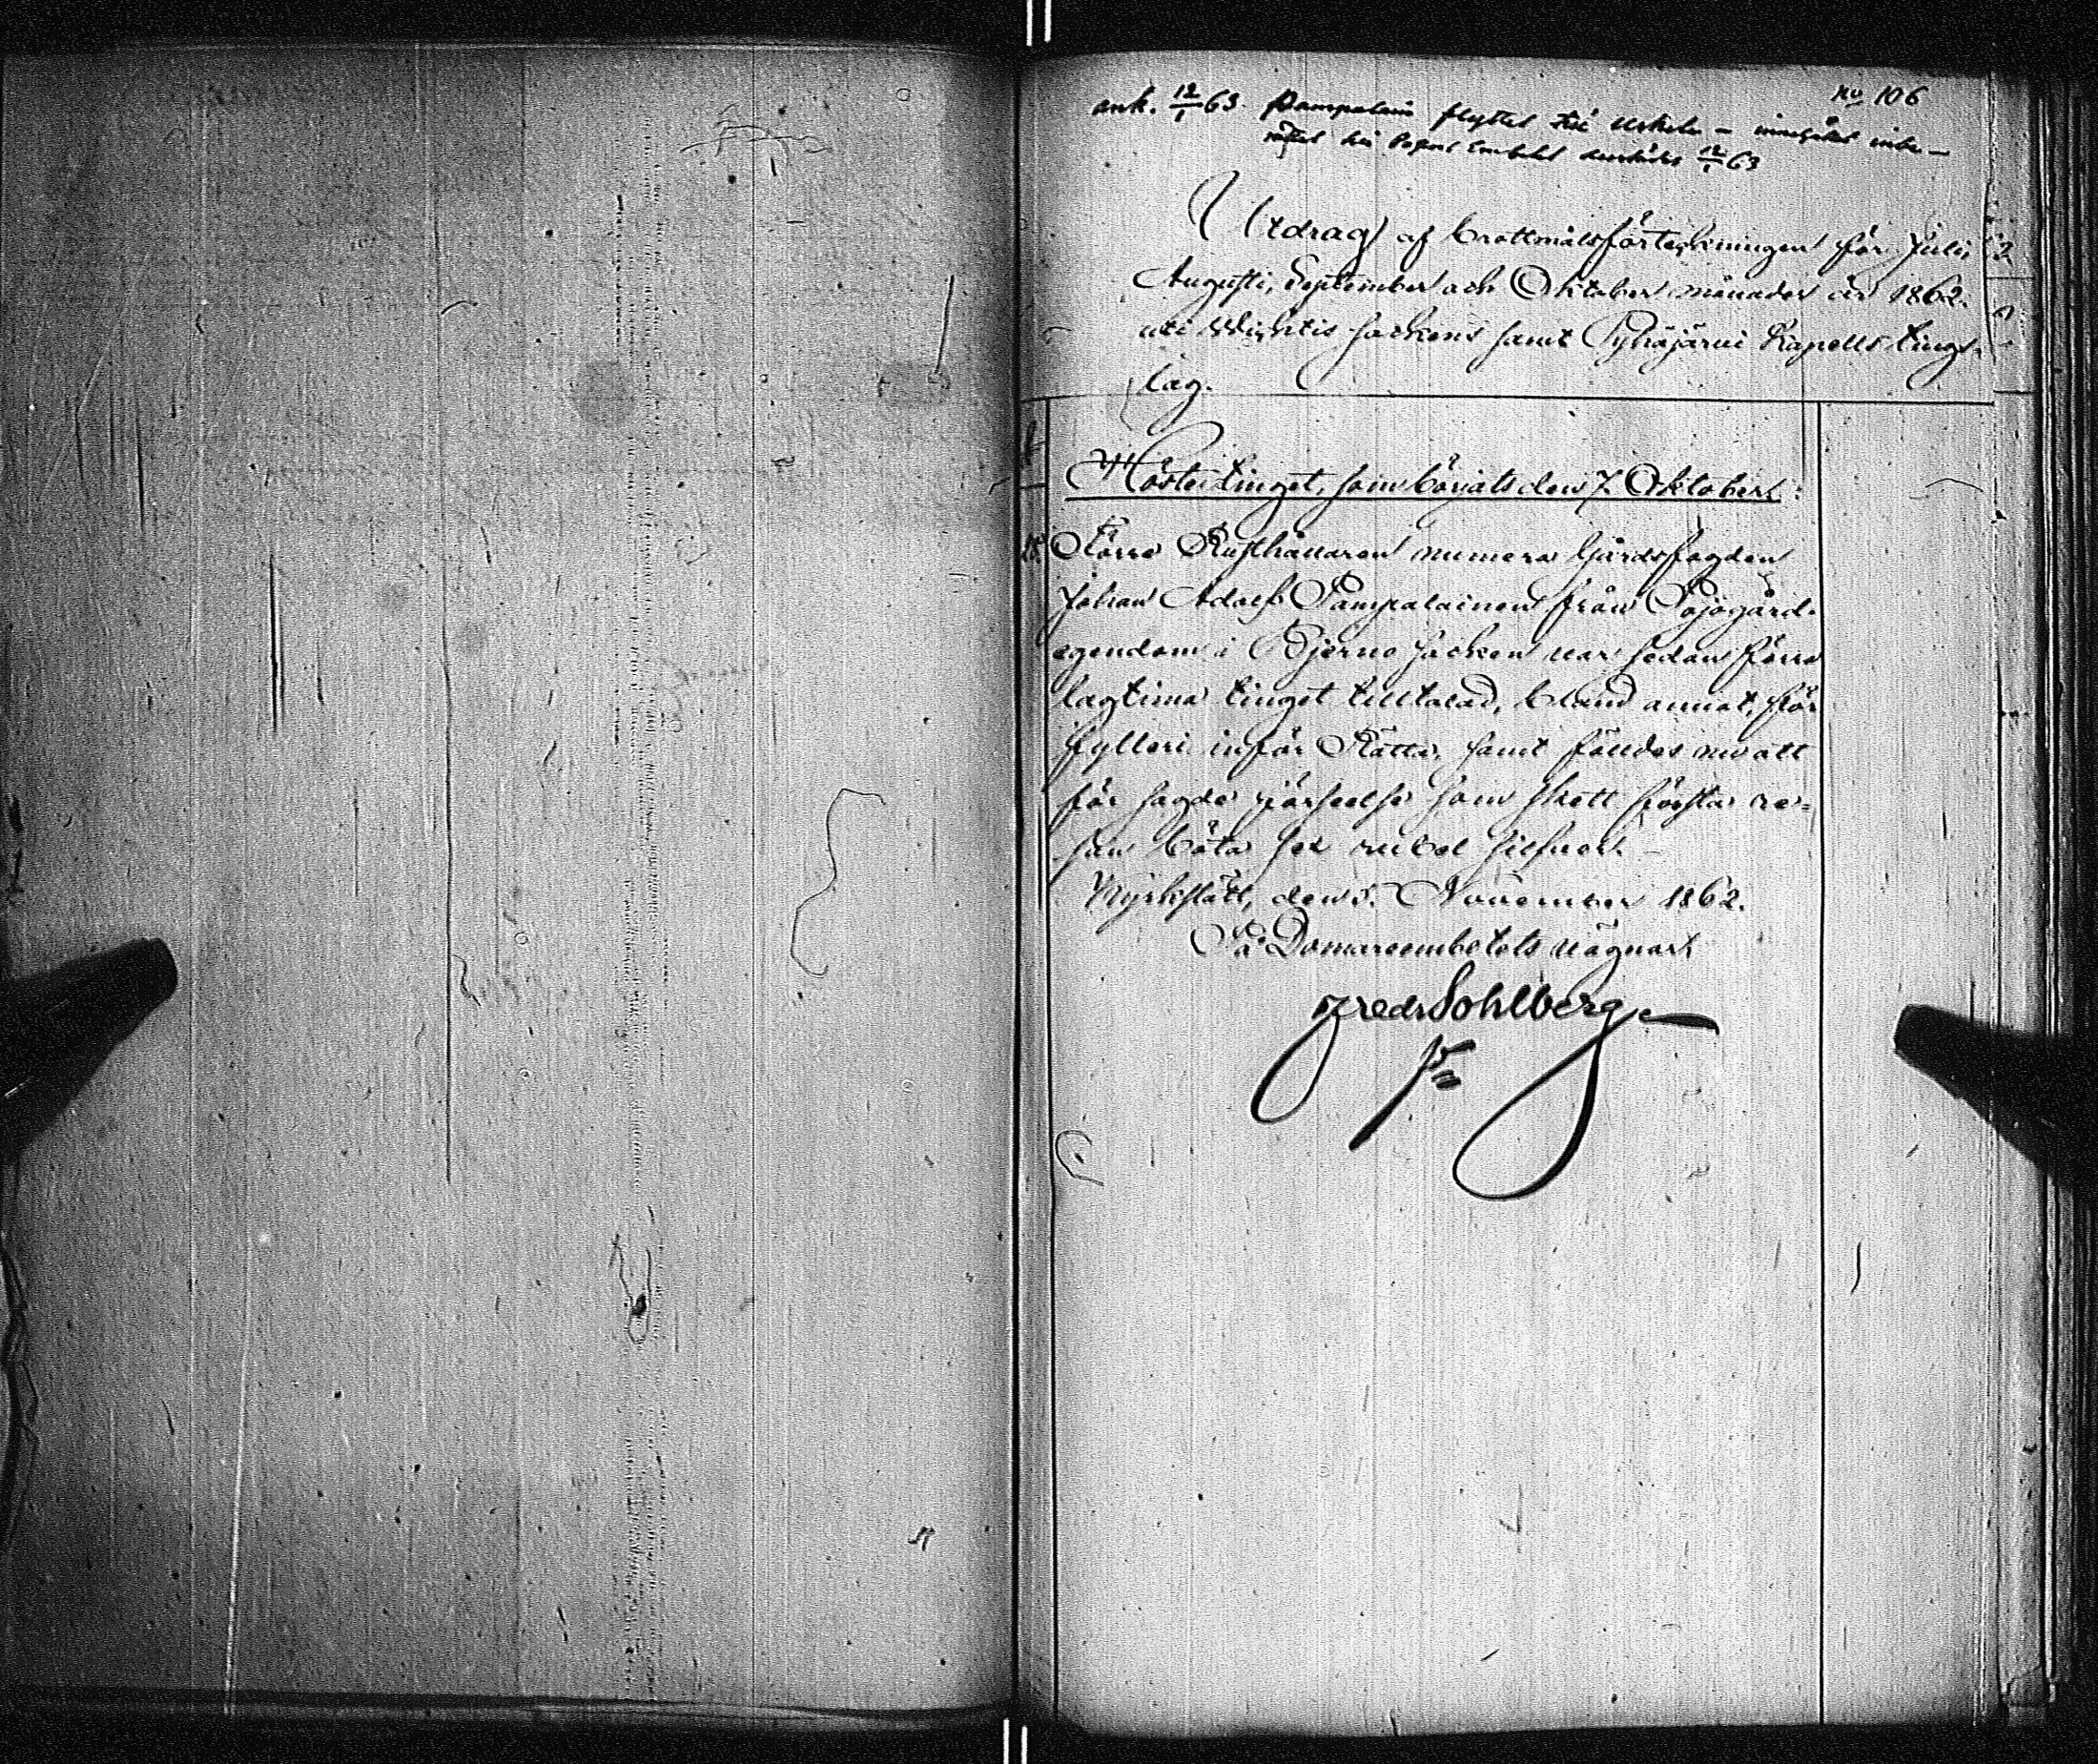 No 106
ank. 12/1 63. Pampalain flyttet till Uskela –
12/1 63
Utdrag af brottmålsförteckningen för Juli,
Augusti, September och Oktober månader år 1862.
uti Wichtis socken samt Pyhäjärvi Kapells tings-
lag.
Höstetinget, som börjats den 7 Oktober:
Förre Rusthållaren numera Gårdsfogden
Johan Adolf Pampalainen från Pojogård.
egendom i Bjerno socken var sedan förra
lagtima tinget tilltalad, bland annat, för
fylleri inför Rätta, samt fälldes nu att
för sagde förseelse som skett första re-
san böta sex rubel silfver. –
Kyrkslätt, den 5. November 1862.
På Domareembetets vägnar:
Fredr Sohlberg.